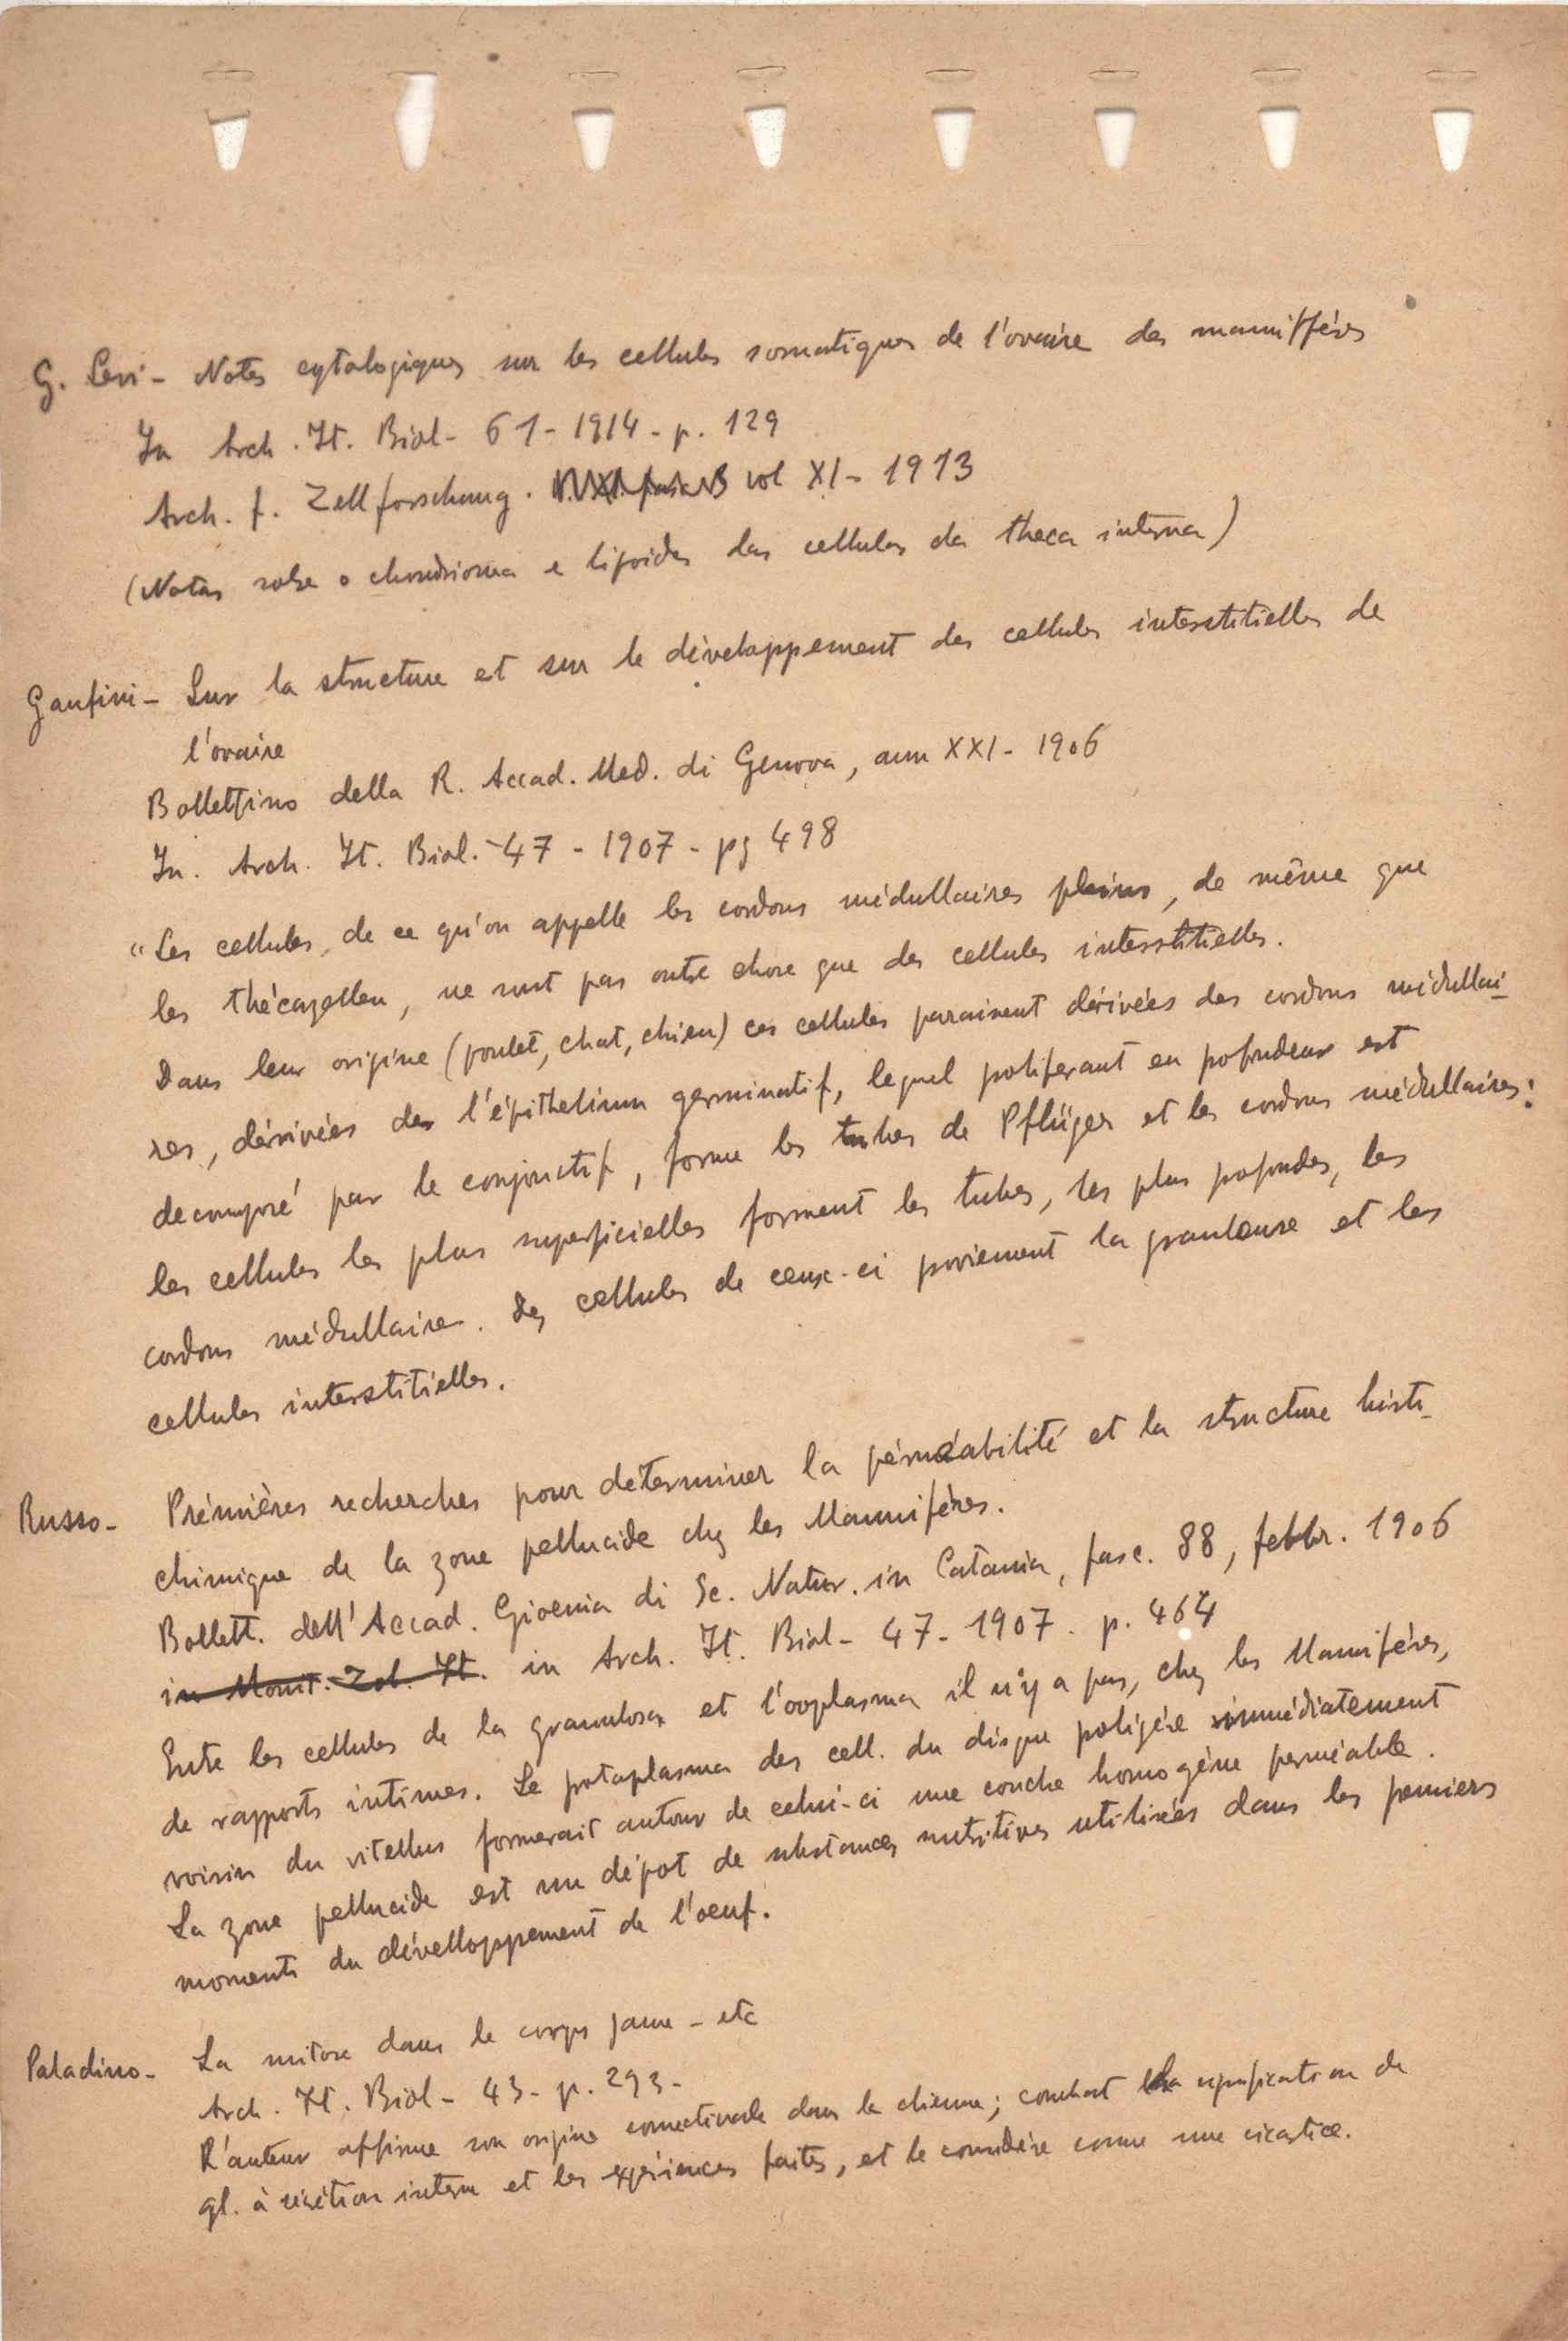 G. Levi - Notes cytologiques sur les cellules somatiques de l'ovaire des mamiffères
In Arch. It. Biol - 61 - 1914 - p. 129
Arch. f. Zellforschung. vol XI - 1913
(Notas sobre o chondrioma e lipoides das cellulas da theca interna)
Ganfini - Sur la structure et sur le développement des cellules interstitielles de
l'ovaire
Bollettino della R. Accad. Med. di Genova, ann XXI - 1906
In. Arch. It. Biol. - 47 - 1907 - pg 498
"Les cellules, de ce qu'on appelle les cordons médullaires pleins, de même que
les thécazellen, ne sont pas autre chose que des cellules interstitielles.
Dans leur origine (poulet, chat, chien) ces cellules paraissent dérivées des cordons médullai-
res, dérivées de l'épithelium germinatif, lequel proliferant en profondeur est
decomposé par le conjonctif, forme les tubes de Pflüger et les cordons médullaires:
les cellules les plus superficielles forment les tubes, les plus profondes, les
cordons médullaires. Des cellules de ceux-ci proviennent la granuleuse et les
cellules interstitielles.
Russo - Prémières recherches pour déterminer la pérméabilité et la structure histo-
chimique de la zone pellucide chez les Mammifères.
Bollett. dell'Accad. Gioenia di Sc. Natur. in Catania, fasc. 88, febbr. 1906
in Monit. Zool. It. in Arch. It. Biol - 47 - 1907 - p. 464
Entre les cellules de la granulosa et l'ooplasma il n'y a pas, chez les Mamifères,
de rapports intimes. Le protoplasma des cell. du disque proligère immédiatement
voisin du vitellus formerait autour de celui-ci une couche homogène perméable.
La zone pellucide est un dépot de substances nutritives utilisées dans les premiers
moments du dévelloppement de l'oeuf.
Paladino - La mitose dans le corps jaune - etc
Arch. It. Biol - 43 - p. 293 -
L'auteur affirme son origine connectivale dans la chienne; combat la signification de
gl. à sécrétion interne et les expériences faites, et le considère comme une cicatrice.